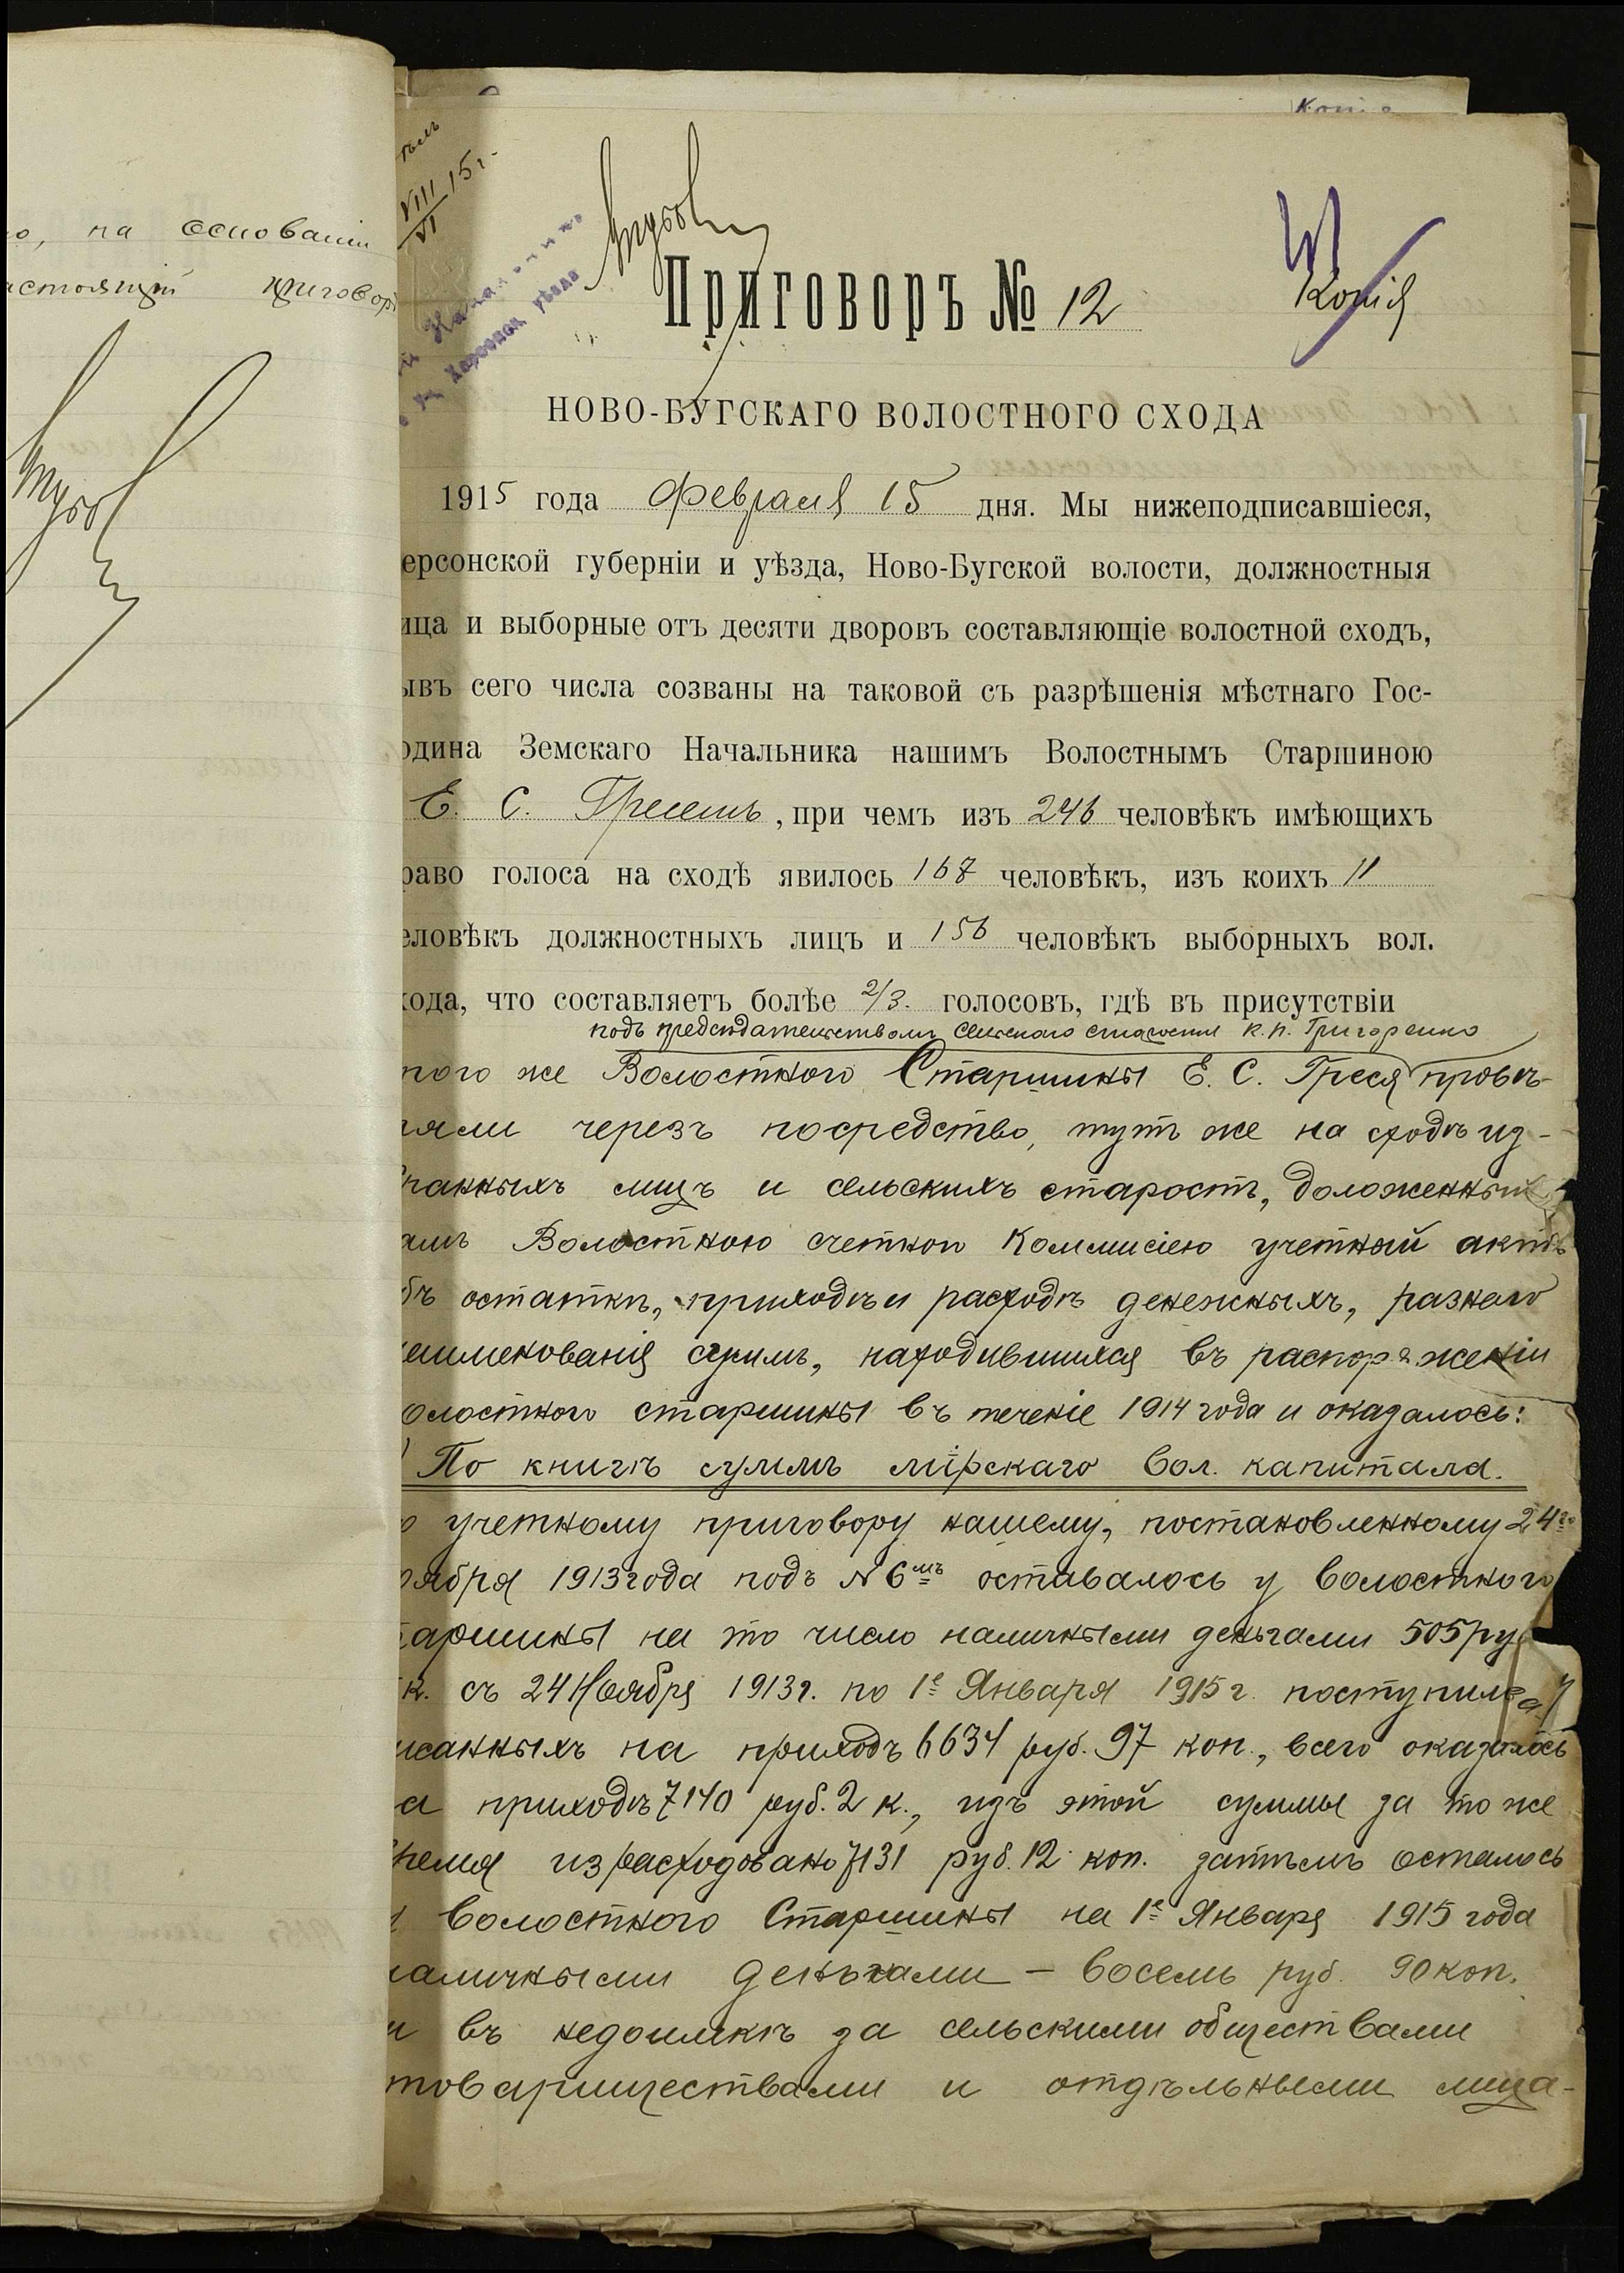 о, на основаніи
астоящій приговоръ
VIII
VI
15 г.
Копія
Приговоръ № 12
НОВО-БУГСКАГО ВОЛОСТНОГО СХОДА
1915 года Февраля 15 дня. Мы нижеподписавшіеся,
ерсонской губерніи и уѣзда, Ново-Бугской волости, должностныя
ица и выборные отъ десяти дворовъ составляющіе волостной сходъ,
ывъ сего числа созваны на таковой съ разрѣшенія мѣстнаго Гос-
одина Земскаго Начальника нашимъ Волостнымъ Старшиною
Е. С. Гресемъ, при чемъ изъ 246 человѣкъ имѣющихъ
раво голоса на сходѣ явилось 167 человѣкъ, изъ коихъ 11
еловѣкъ должностныхъ лицъ и 156 человѣкъ выборныхъ вол.
хода, что составляетъ болѣе 2/3. голосовъ, гдѣ въ присутствіи
подъ предсѣдательствомъ Сельскаго старосты К. П. Григоренко
того же Волостного Старшины Е. С. Греся провѣ-
ряли черезъ посредство, тутъ же на сходѣ из-
бранныхъ лицъ и сельскихъ старостъ, доложенный
амъ Волостною счетною Коммисіею учетный актъ
бъ остаткѣ, приходѣ и расходѣ денежныхъ, разнаго
аименованія суммъ, находившихся въ распоряженіи
олостного старшины въ теченіе 1914 года и оказалось:
) По книгѣ суммъ мірскаго вол. капитала.
о учетному приговору нашему, постановленному 24го
оября 1913 года подъ № 6мъ оставалось у волостного
таршины на то число наличными деньгами 505 руб
к. съ 24 Ноября 1913 г. по 1е Января 1915 г. поступило
исанныхъ на приходъ 6634 руб. 97 коп., всего оказалось
а приходѣ 7140 руб. 2 к., изъ этой суммы за то же
время израсходовано 7131 руб. 12 коп. затѣмъ осталось
у волостного Старшины на 1е Января 1915 года
наличными деньгами – восемь руб. 90 коп.
и въ недоимкѣ за сельскими обществами
товариществами и отдѣльными лица-